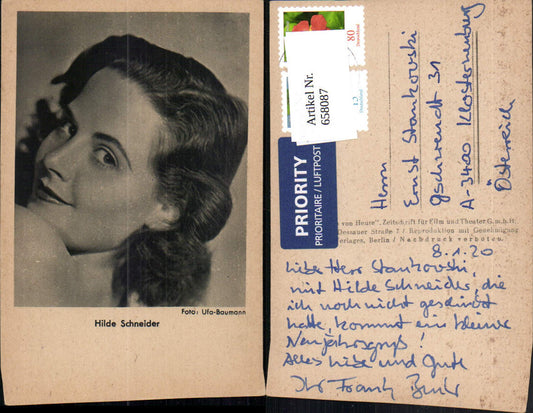 Foto: Ufa-Baumann
Hilde Schneider
80
Deutschland
12
Deutschland
Artikel Nr.
658087
PRIORITY
PRIORITAIRE / LUFTPOST
Herrn
Ernst Stankovski
Gschwendt 31
A-3400 Klosterneuburg
Österreich
von Heute", Zeitschrift für Film und Theater G.m.b.H.
Dessauer Straße 7 / Reproduktion mit Genehmigung
erlages, Berlin / Nachdruck verboten.
8.1.20
Lieber Herr Stankovski,
mit Hilde Schneider, die
ich noch nicht geschickt
hatte, kommt ein kleiner
Neujahrsgruß!
Alles Liebe und Gute
Ihr Frank